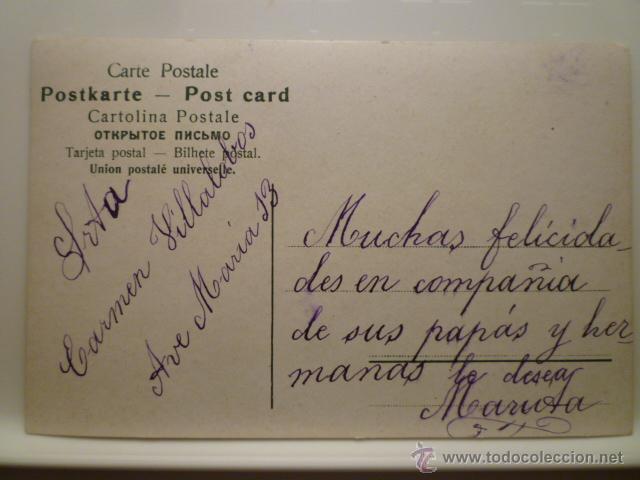 Carte Postale
Postkarte — Post card
Cartolina Postale
ОТКРЫТОЕ ПИСЬМО
Tarjeta postal — Bilhete postal.
Union postale universelle.
Srta
Carmen Villalobos
Ave Maria 13
Muchas felicida-
des en compañia
de sus papás y her-
manas le desea
Maruta
www.todocoleccion.net